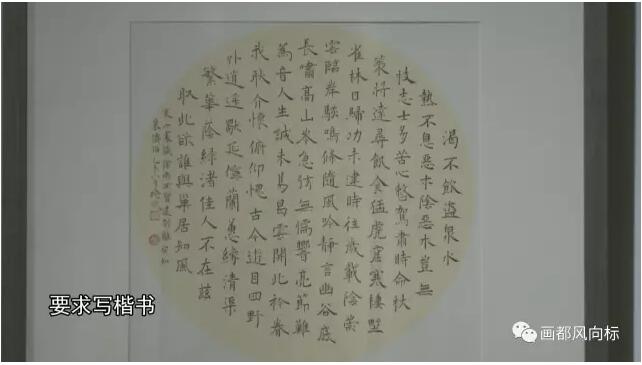 渴不飲盜泉水
熱不息惡木陰惡木豈無
枝志士多苦心整駕肅時命杖
策將遠尋飢食猛虎窟寒棲野
雀林日歸功未建時往歲載陰崇
雲臨岸駭鳴條隨風吟靜言幽谷底
長嘯高山岑急弦無懦響亮節難
為音人生誠未易曷雲開此衿眷
我耿介懷俯仰愧古今遊目四野
外逍遙延佇蘭蕙緣清渠
繁華蔭綠渚佳人不在茲
取此欲誰與巢居知風
要求写楷书
画都风向标